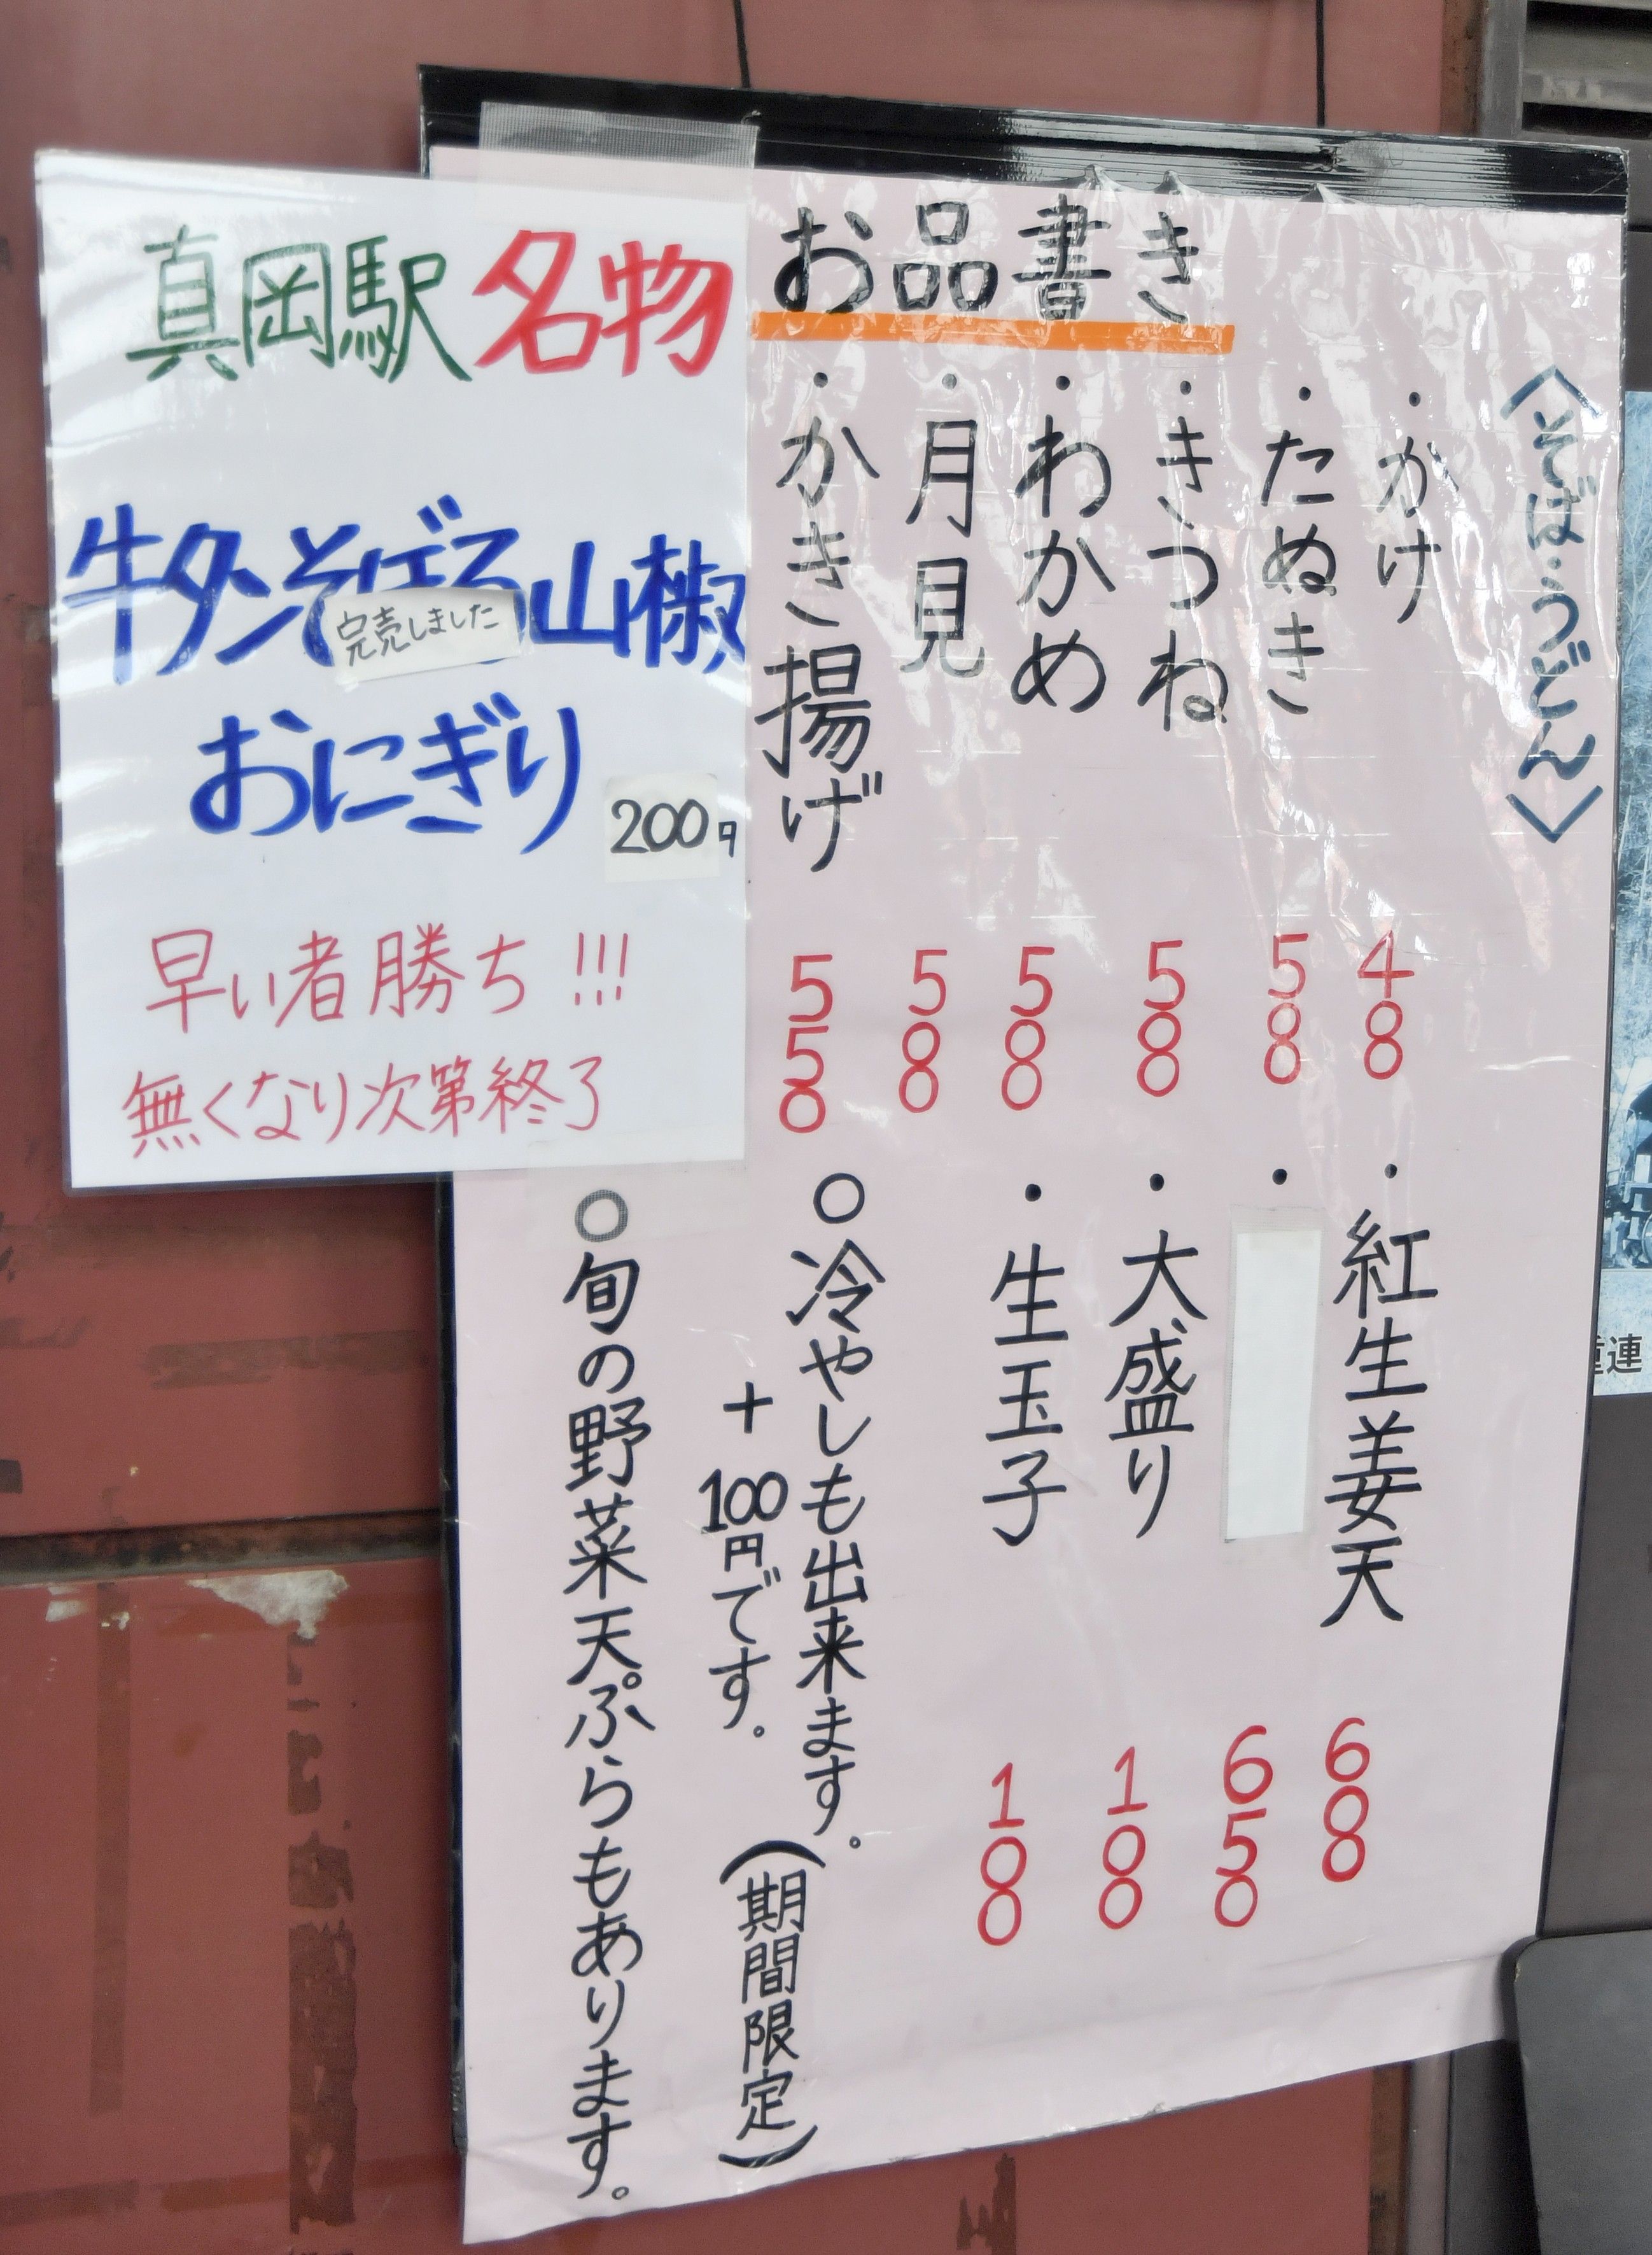 真岡駅名物
牛タンそぼろ山椒
完売しました
おにぎり
200円
早い者勝ち!!!
無くなり次第終了
お品書き
〈そば・うどん〉
・かけ 400
・たぬき 500
・きつね 500
・わかめ 500
・月見 500
・かき揚げ 550
・紅生姜天 600
・ 650
・大盛り 100
・生玉子 100
○冷やしも出来ます。
+100円です。(期間限定)
○旬の野菜天ぷらもあります。
重連